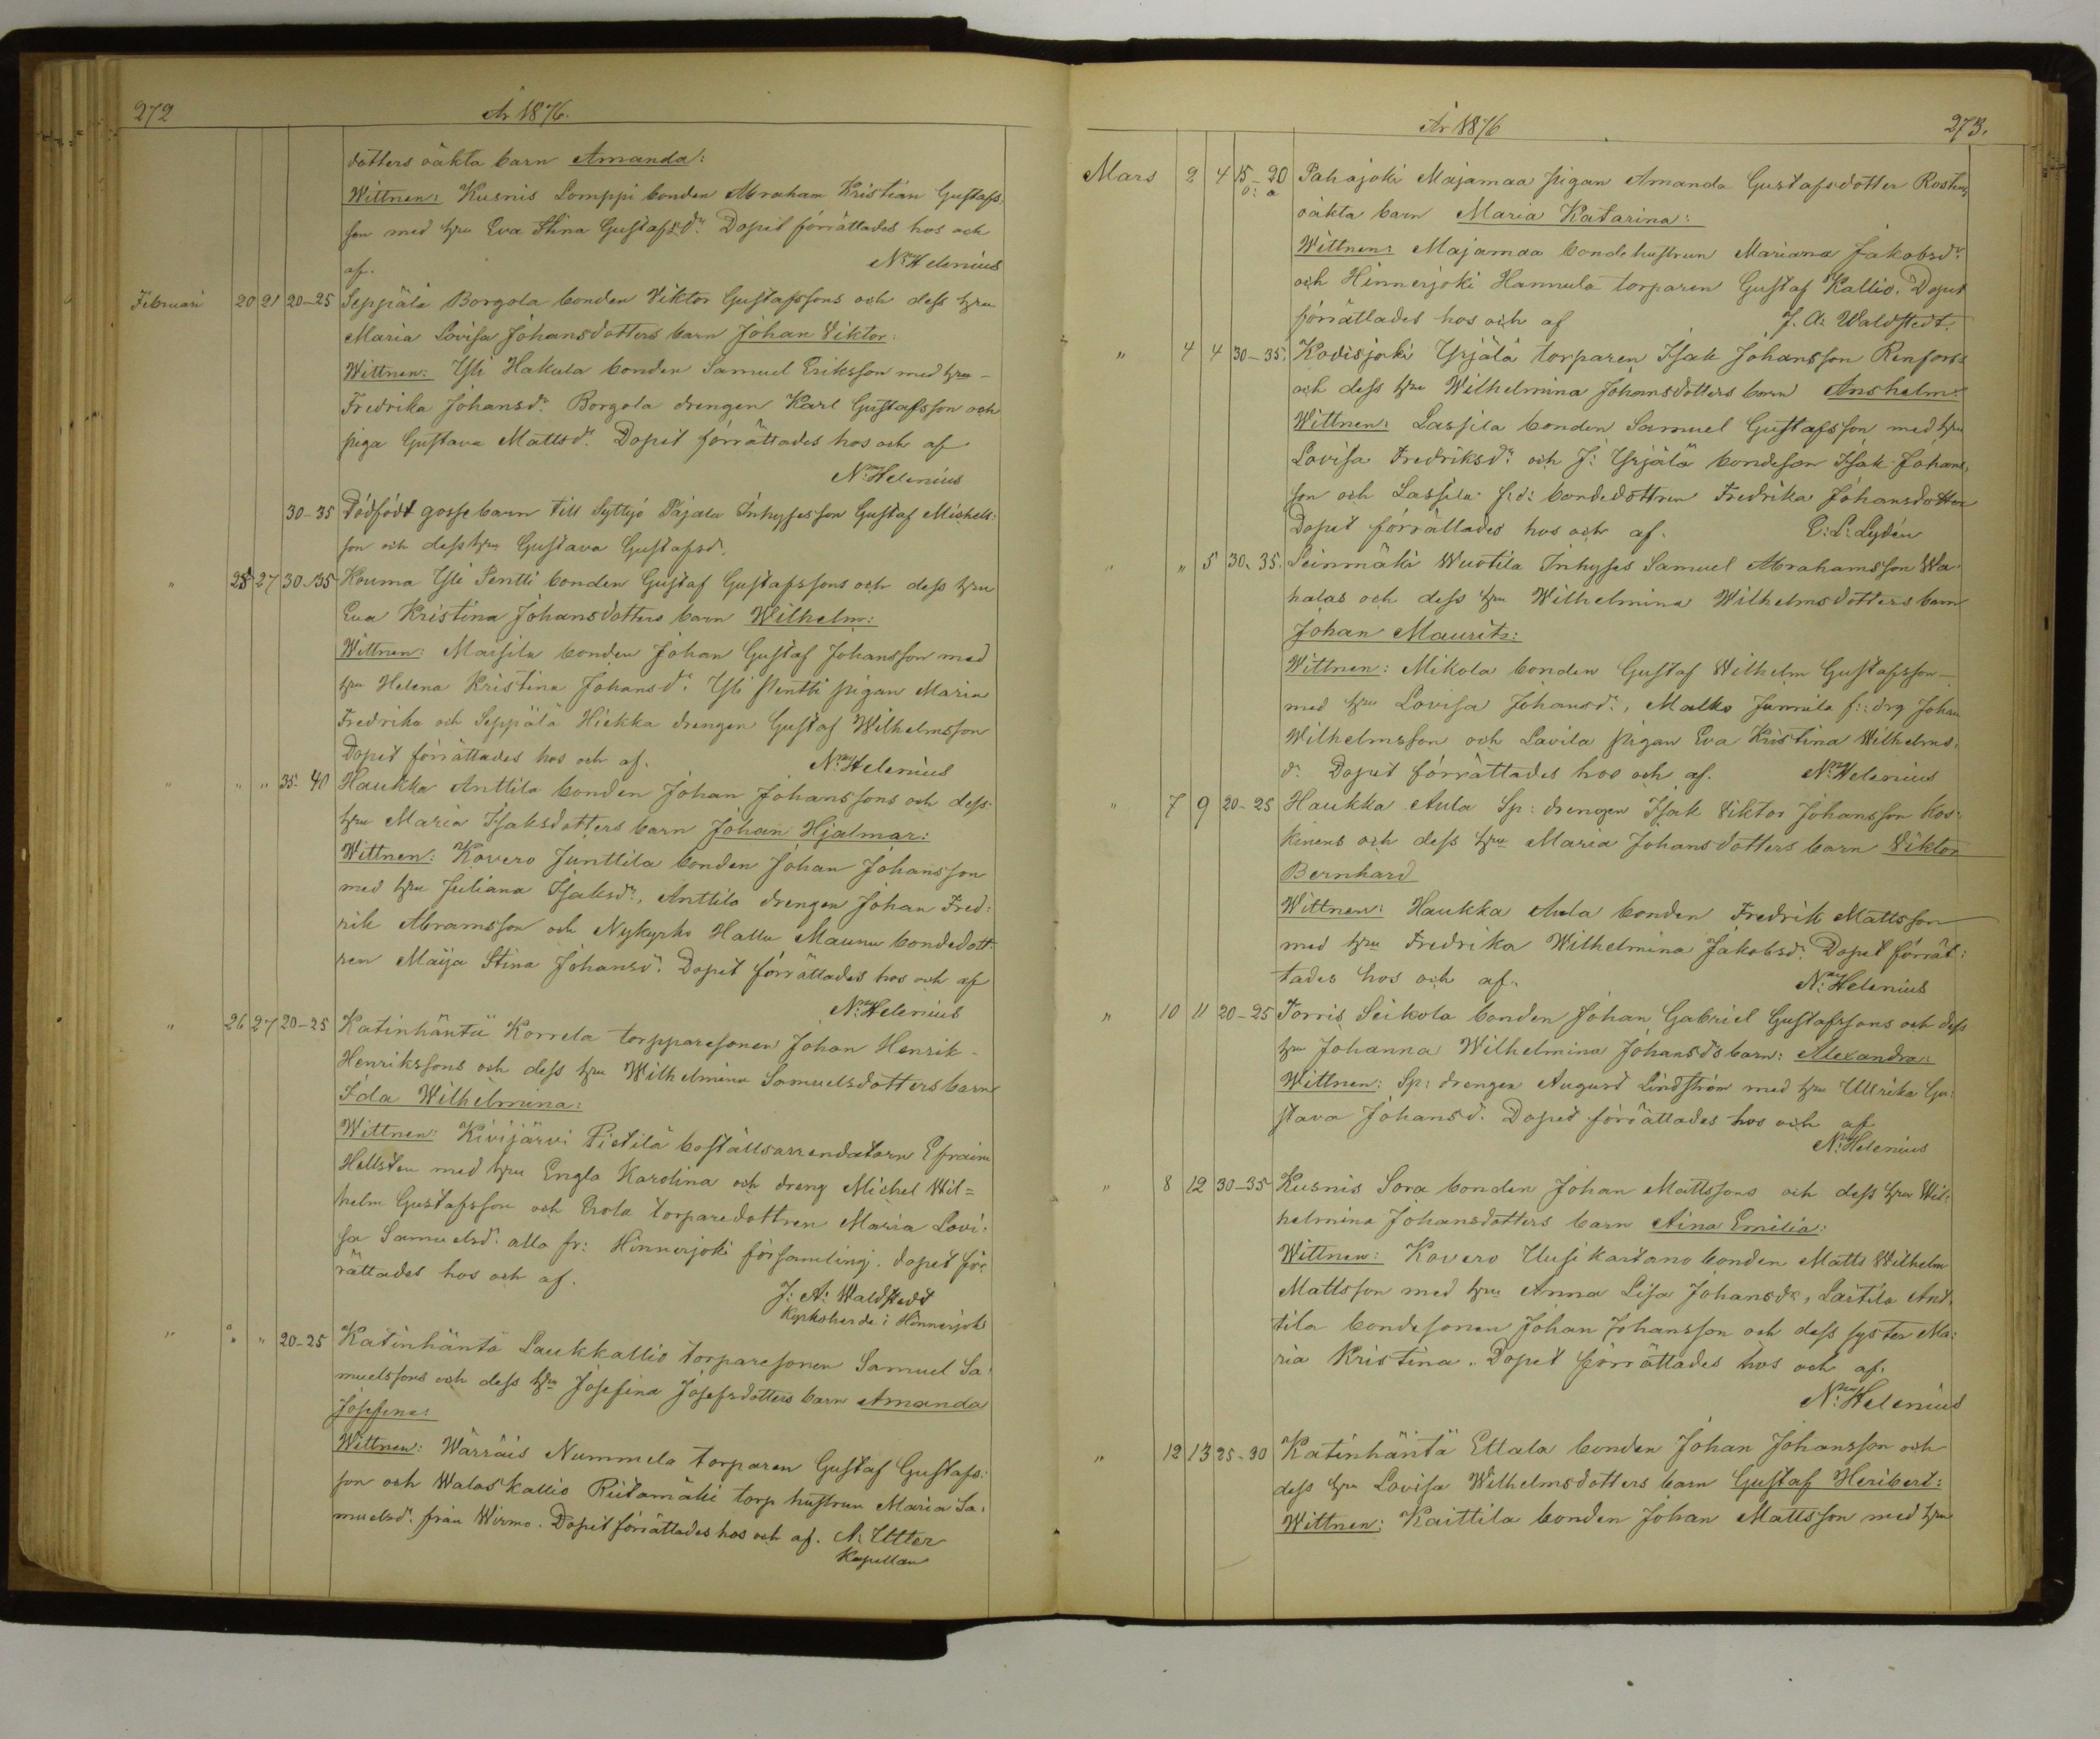 272
År 1876.
dotters oäkta barn Amanda:
Wittnen: Kusnis Lomppi bonden Abraham Kristian Gustafs:
son med hru Eva Stina Gustafsdr. Dopet förrättades hos och
af. N: Helenius
Februari 20 21 20-25 Seppälä Borgola bonden Viktor Gustafssons och dess hru
Maria Lovisa Johansdotters barn Johan Viktor:
Wittnen: Yli Hakula bonden Samuel Eriksson med hru
Fredrika Johansdr. Borgola drengen Karl Gustafsson och
piga Gustava Mattsdr. Dopet förrättades hos och af
N: Helenius
30-35 Dödfödt gossebarn till Syttyö Pajala Inhysesson Gustaf Michels:
son och dess hru Gustava Gustafsd.
" 25 27 30-35 Kouma Yli Pentti bonden Gustaf Gustafssons och dess hru
Eva Kristina Johansdotters barn Wilhelm:
Wittnen: Maisila bonden Johan Gustaf Johansson med
hru Helena Kristina Johansdr. Yli Pentti pigan Maria
Fredrika och Seppälä Hiekka drengen Gustaf Wilhelmsson
Dopet förrättades hos och af. N: Helenius
" " " 35-40 Haukka Anttila bonden Johan Johanssons och dess
hru Maria Isaksdotters barn Johan Hjalmar:
Wittnen: Kovero Junttila bonden Johan Johansson
med hru Juliana Isaksdr, Anttila drengen Johan Fred:
rik Abramsson och Nykyrko Hallu Maunu bondedott-
ren Maija Stina Johansdr. Dopet förrättades hos och af
N: Helenius
" 26 27 20-25 Katinhäntä Korrela torpparesonen Johan Henrik-
Henrikssons och dess hru Wilhelmina Samuelsdotters barn
Ida Wilhelmina:
Wittnen: Kivijärvi Pietilä boställsarrendatorn Efraim
Hellsten med hru Engla Karolina och dreng Michel Wil=
helm Gustafsson och torparedottren Maria Lovi:
sa Samuelsdr. alla fr: Hinnerjoki församling. Dopet för:
rättades hos och af.
J: A: Waldstedt
Kyrkoherde i Hinnerjoki
" " " 20-25 Katinhäntä Laukkallio torparesonen Samuel Sa:
muelssons och dess hru Josefina Josefsdotters barn Amanda
Josefina:
Wittnen: Wärräis Nummela torparen Gustaf Gustafs:
son och Walaskallio Riitamäki torp hustrun Maria Sa:
muelsdr. från Wirmo. Dopet förrättades hos och af. A: Utter
Kapellan
År 1876
273.
Mars 2 4 15-20 Pahajoki Majamaa pigan Amanda Gustafsdotter
o: a
oäkta barn Maria Katarina:
Wittnen: Majamaa bondehustrun Mariana Jakobsdr.
och Hinnerjoki Hannula torparen Gustaf Kallio. Dopet
förrättades hos och af J. A: Waldstedt.
" 4 4 30-35. Kodisjoki Yrjälä torparen Isak Johansson Renfors
och dess hru Wilhelmina Johansdotters barn Anshelm:
Wittnen: Lassila bonden Samuel Gustafsson med hru
Lovisa Fredriksdr. och J: Yrjälä bondeson Isak Johans:
son och Lassila f:d: bondedottren Fredrika Johansdotter
Dopet förrättades hos och af. C: L: Lydén
" " 5 30-35. Seinmäki Wuotila Inhyses Samuel Abrahamsson Wa-
halas och dess hru Wilhelmina Wilhelmsdotters barn
Johan Maurits:
Wittnen: Mikola bonden Gustaf Wilhelm Gustafsson
med hru Lovisa Johansdr., Malko Junnila f: drg Johan
Wilhelmsson och Lavila pigan Eva Kristina Wilhelms:
dr. Dopet förrättades hos och af. N: Helenius
" 7 9 20-25 Haukka Aula Sp: drengen Isak Viktor Johansson Kos:
kinens och dess hru Maria Johansdotters barn Viktor
Bernhard
Wittnen: Haukka Aula bonden Fredrik Mattsson
med hru Fredrika Wilhelmina Jakobsdr. Dopet förrät:
tades hos och af. N: Helenius
" 10 11 20-25 Torris Seikola bonden Johan Gabriel Gustafssons och dess
hru Johanna Wilhelmina Johansds barn: Alexandra:
Wittnen: Sp: drengen August Lindström med hru Ullrika Gu:
stava Johansd. Dopet förrättades hos och af
N: Helenius
" 8 12 30-35 Kusnis Sora bonden Johan Mattssons och dess hru Wil:
helmina Johansdotters barn Aina Emilia:
Wittnen: Kovero Uusikartano bonden Matts Wilhelm
Mattsson med hru Anna Lisa Johansdr, Laitila Ant-
tila bondesonen Johan Johansson och dess syster Ma:
ria Kristina. Dopet förrättades hos och af.
N: Helenius
" 12 13 25-30 Katinhäntä Ettala bonden Johan Johansson och
dess hru Lovisa Wilhelmsdotters barn Gustaf Heribert:
Wittnen: Kaittila bonden Johan Mattsson med hru